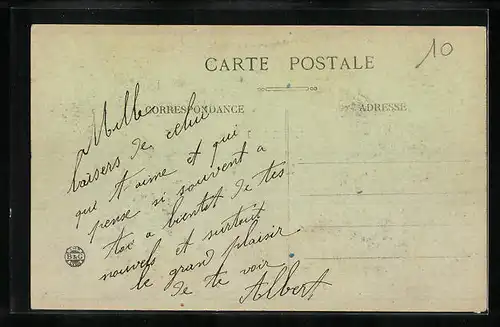 10
CARTE POSTALE
CORRESPONDANCE
ADRESSE
Mille
baisers de celui
qui t'aime et qui
pense si souvent a
toi a bientot de tes
nouvels et surtout
le grand plaisir
de te voir
Albert
B&G